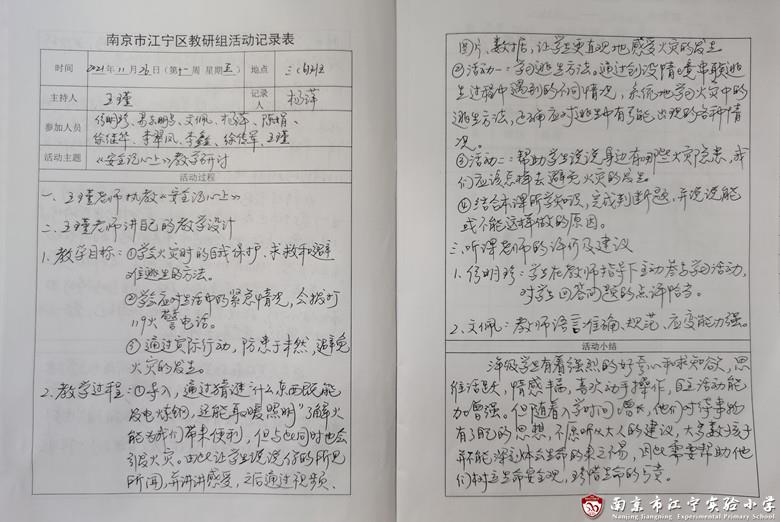 南京市江宁区教研组活动记录表
时间 2021年11月26日(第十一周 星期五) 地点 三(4)班
主持人 王瑾 记录人 杨萍
参加人员 徐明珍、 文佩、杨萍、陈娟、
徐佳华、李翠凤、李鑫、徐传军、王瑾
活动主题 《安全记心上》教学研讨
活动过程
一、王瑾老师执教《安全记心上》
二、王瑾老师讲自己的教学设计
1.教学目标:①学会火灾时的自我保护、求救和避
难逃生的方法。
②学会应对生活中的紧急情况,会拨打
119火警电话。
③通过实际行动,防患于未然,避免
火灾的发生。
2.教学过程:①导入,通过猜谜“什么东西既能
发电炼钢,还能取暖照明”了解火
能为我们带来便利,但与此同时也会
引发火灾。由此让学生说说你的所见
所闻,并讲讲感受,之后通过视频、
图片、数据,让学生更直观地感受火灾的发生
②活动一:学习逃生方法。通过创设情境串联逃
生过程中遇到的不同情况,系统地学习火灾中的
逃生方法,正确应对逃生中有可能出现的各种情
况。
③活动二:帮助学生说说身边有哪些火灾隐患,我
们应该怎样去避免火灾的发生。
④结合本课所学知识,完成判断题,并说说能
或不能这样做的原因。
三、听课老师的评价及建议
1.徐明珍:学生在教师指导下主动参与学习活动,
对学生回答问题的点评恰当。
2.文佩:教师语言准确、规范,应变能力强。
活动小结
年级学生有着强烈的好奇心和求知欲,思
维活跃,情感丰富,喜欢动手操作,自主活动能
力增强。但随着入学时间增长,他们对待事物
有了自己的思想,不愿听从大人的建议,大多数孩子
并不能深刻体会生命的来之不易,因此需要帮助他
们树立生命安全观,珍惜生命的可贵。
南京市江宁实验小学
Nanjing Jiangning Experimental Primary School